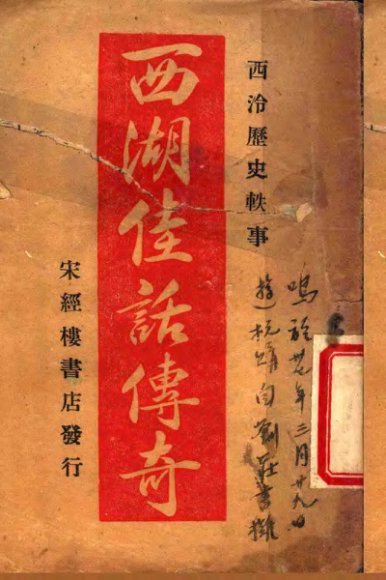 西泠歷史軼事
西湖佳話傳奇
宋經樓書店發行
鳴於卅七年三月廿九日
遊杭購自劉莊書攤